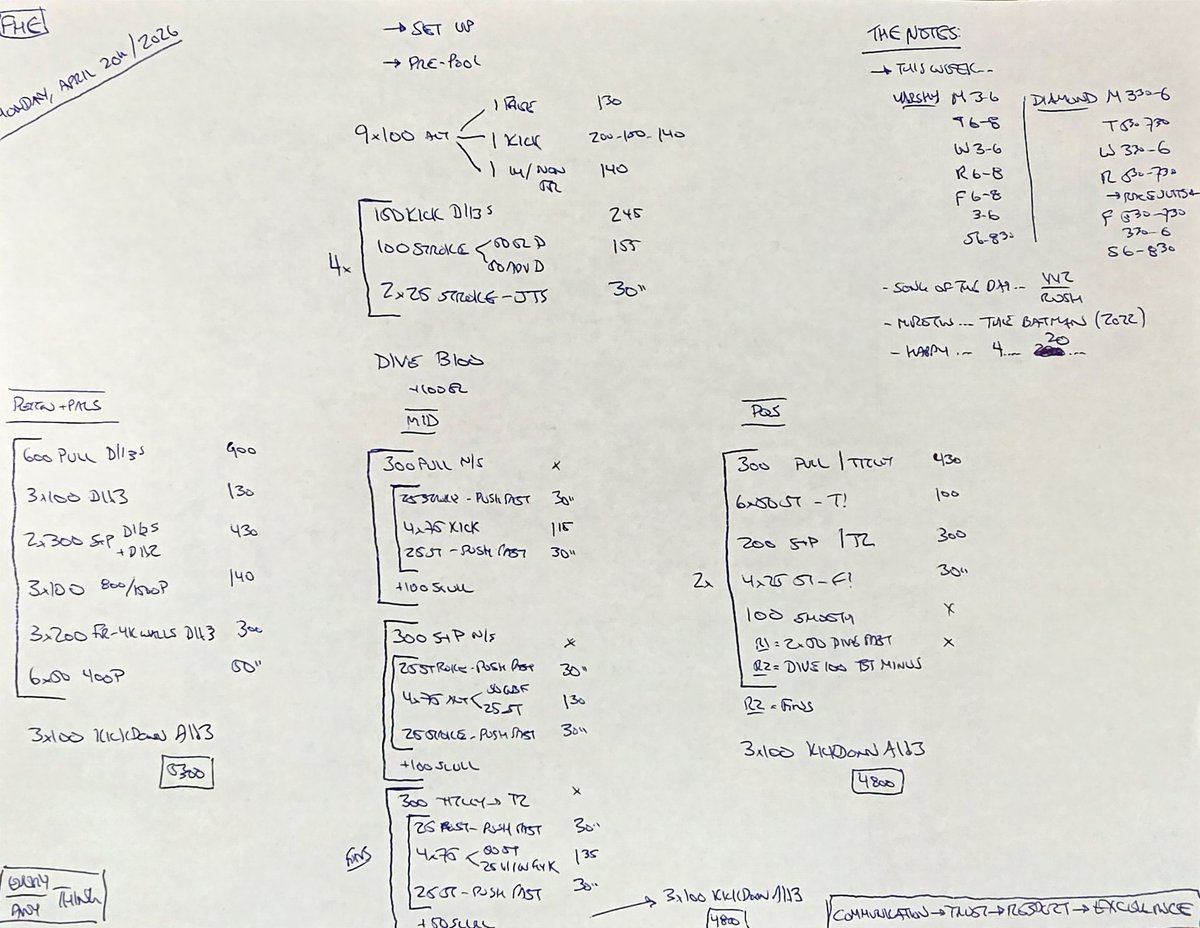 FHE
MONDAY, APRIL 20TH/2026
→ SET UP
→ PRE-POOL
9x100 ALT
1 FREE 130
1 KICK 200-150-140
1 IM/NON FR 140
4x
150 KICK D1/3S 245
100 STROKE 155
50 SL D
50 ADV D
2x25 STROKE - JTS 30"
DIVE B100
+100 EZ
THE NOTES:
→ THIS WEEK...
VARSITY M 3-6
T 6-8
W 3-6
R 6-8
F 6-8
3-6
S 6-830
DIAMOND M 330-6
T 530-730
W 330-6
R 530-730
F 530-730
330-6
S 6-830
- SONG OF THE DAY... YYZ
RUSH
... THE BATMAN (2022)
- HAPPY ... 4.... 20 ...
+ PALS
600 PULL D1/3S 900
3x100 D1/3 130
2x300 S+P D1/2S + D1/2 430
3x100 800/1500P 140
3x200 FR-4K WALLS D1/3 300
6x50 400P 50"
3x100 KICKDOWN A1/3
5300
MID
300 PULL N/S x
25 STROKE - PUSH FAST 30"
4x75 KICK 115
25 ST - PUSH FAST 30"
+100 SCULL
300 S+P N/S x
25 STROKE - PUSH FAST 30"
4x75 ALT 130
25 ST
25 STROKE - PUSH FAST 30"
+100 SCULL
FINS
300 → T2 x
25 - PUSH FAST 30"
4x75 135
50 ST
25 ST - PUSH FAST 30"
+50 SCULL
→ 3x100 KICKDOWN A1/3
4800
2x
300 PULL / 430
6x50 ST - T! 100
200 S+P / T2 300
4x25 ST - F! 30"
100 SMOOTH x
R1 = 2x50 DIVE FAST x
R2 = DIVE 100 BT MINUS
R2 = FINS
3x100 KICKDOWN A1/3
4800
EVERY
ANY
THING
COMMUNICATION → TRUST → RESPECT → EXCELLENCE